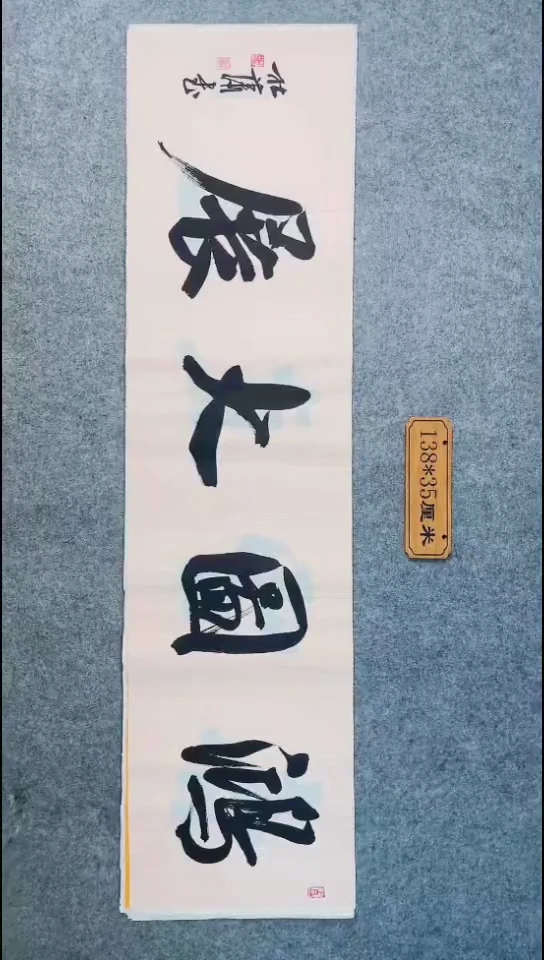 鸿圖大展
书
138*35厘米